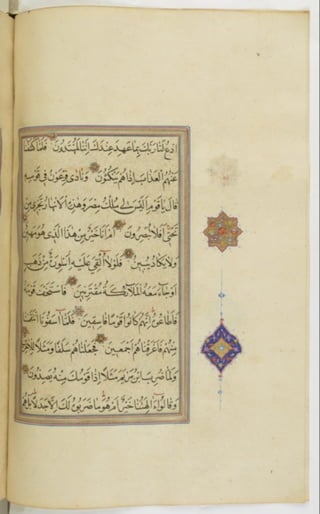 ادْعُ لَنَا رَبَّكَ بِمَا عَهِدَ عِنْدَكَ اِنَّنَا لَمُهْتَدُونَ فَلَمَّا كَشَفْنَا
عَنْهُمُ الْعَذَابَ اِذَا هُمْ يَنْكُثُونَ وَنَادٰى فِرْعَوْنُ فِي قَوْمِهِ
قَالَ يَا قَوْمِ اَلَيْسَ لِي مُلْكُ مِصْرَ وَهٰذِهِ الْاَنْهَارُ تَجْرِي مِنْ
تَحْتِي اَفَلَا تُبْصِرُونَ اَمْ اَنَا خَيْرٌ مِنْ هٰذَا الَّذِي هُوَ مَهِينٌ
وَلَا يَكَادُ يُبِينُ فَلَوْلَا اُلْقِيَ عَلَيْهِ اَسْوِرَةٌ مِنْ ذَهَبٍ
اَوْ جَاءَ مَعَهُ الْمَلَائِكَةُ مُقْتَرِنِينَ فَاسْتَخَفَّ قَوْمَهُ
فَاَطَاعُوهُ اِنَّهُمْ كَانُوا قَوْمًا فَاسِقِينَ فَلَمَّا اٰسَفُونَا انْتَقَمْنَا
مِنْهُمْ فَاَغْرَقْنَاهُمْ اَجْمَعِينَ فَجَعَلْنَاهُمْ سَلَفًا وَمَثَلًا لِلْاٰخِرِينَ
وَلَمَّا ضُرِبَ ابْنُ مَرْيَمَ مَثَلًا اِذَا قَوْمُكَ مِنْهُ يَصِدُّونَ
وَقَالُوا ءَاٰلِهَتُنَا خَيْرٌ اَمْ هُوَ مَا ضَرَبُوهُ لَكَ اِلَّا جَدَلًا بَلْ هُمْ